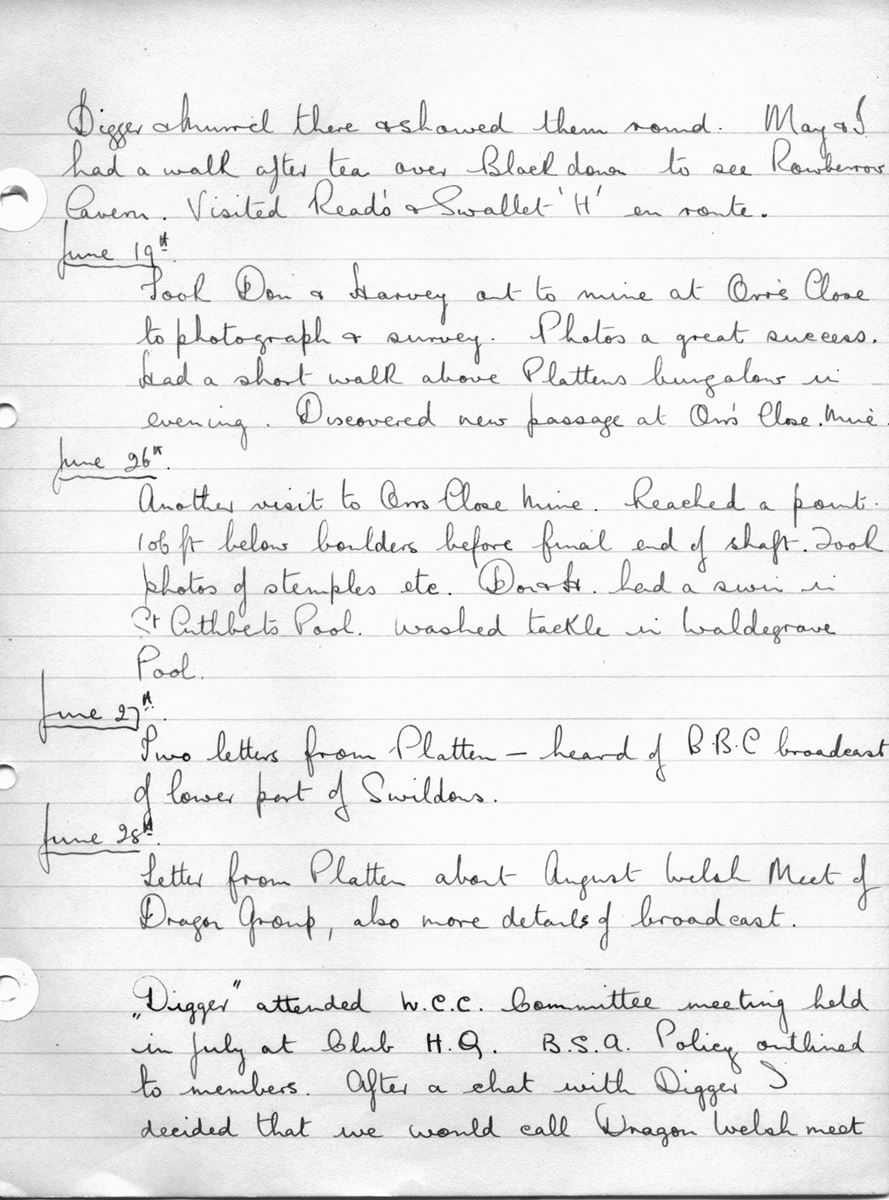 Digger & Murriel there & showed them round. May & I
had a walk after tea over Blackdown to see Rowberrow
Cavern. Visited Read's & Swallet 'H' en route.
June 19th.
Took Don & Harvey out to mine at Orr's Close
to photograph & survey. Photos a great success.
Had a short walk above Plattens bungalow in
evening. Discovered new passage at Orr's Close. Mine.
June 26th.
Another visit to Orrs Close Mine. Reached a point.
106 ft below boulders before final end of shaft. Took
photos of stemples etc. Don & H. had a swim in
St Cuthbets Pool. Washed tackle in Waldegrave
Pool.
June 27th.
Two letters from Platten – heard of B.B.C broadcast
of lower part of Swildons.
June 28th.
Letter from Platten about August Welsh Meet of
Dragon Group, also more details of broadcast.
„Digger" attended W.C.C. Committee meeting held
in July at Club H.Q. B.S.A. Policy outlined
to members. After a chat with Digger I
decided that we would call Dragon Welsh meet